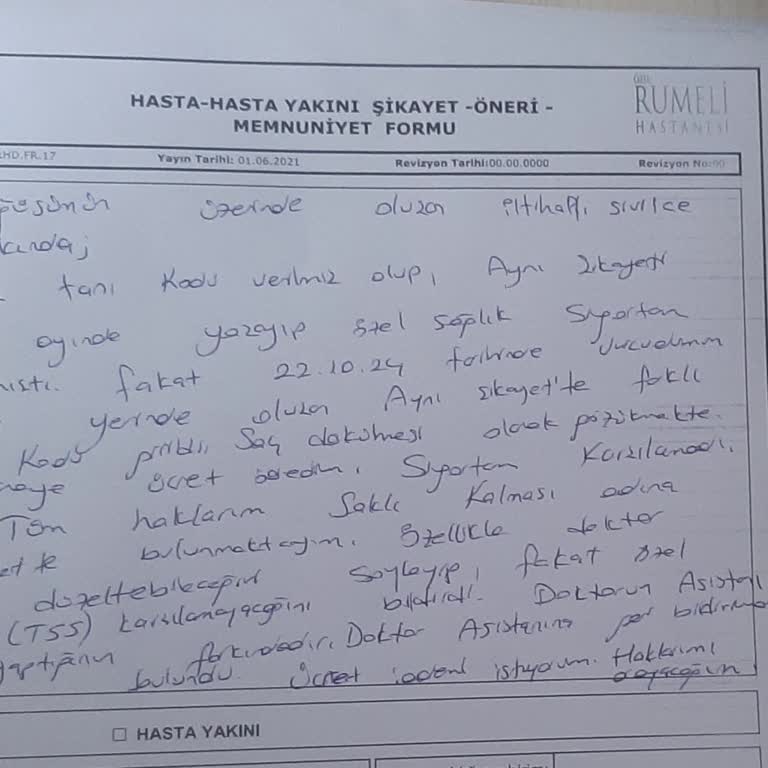 HASTA-HASTA YAKINI ŞİKAYET -ÖNERİ -
MEMNUNİYET FORMU
ÖZEL
RUMELİ
HASTANESİ
HD.FR.17 Yayın Tarihi: 01.06.2021 Revizyon Tarihi:00.00.0000 Revizyon No:00
üzerinde oluşan iltihaplı sivilce
tanı kodu verilmiş olup, Aynı şikayetti
ayında özel sağlık Sigortam
fakat 22.10.24 tarihinde Vucudumun
yerinde oluşan Aynı şikayet'te farklı
Kodu Saç dökülmesi olarak gözükmekte.
ücret ödedim. Sigortam Karşılamadı.
Tüm haklarım Saklı Kalması adına
bulunmaktayım. Özellikle doktor
düzeltebileceğini söyleyip, fakat özel
(TSS) karşılamayacağını bildirdi. Doktorun Asistanı
yaptığının farkındadır. Doktor Asistanına
bulundu. Ücret iademi istiyorum. Hakkımı
HASTA YAKINI